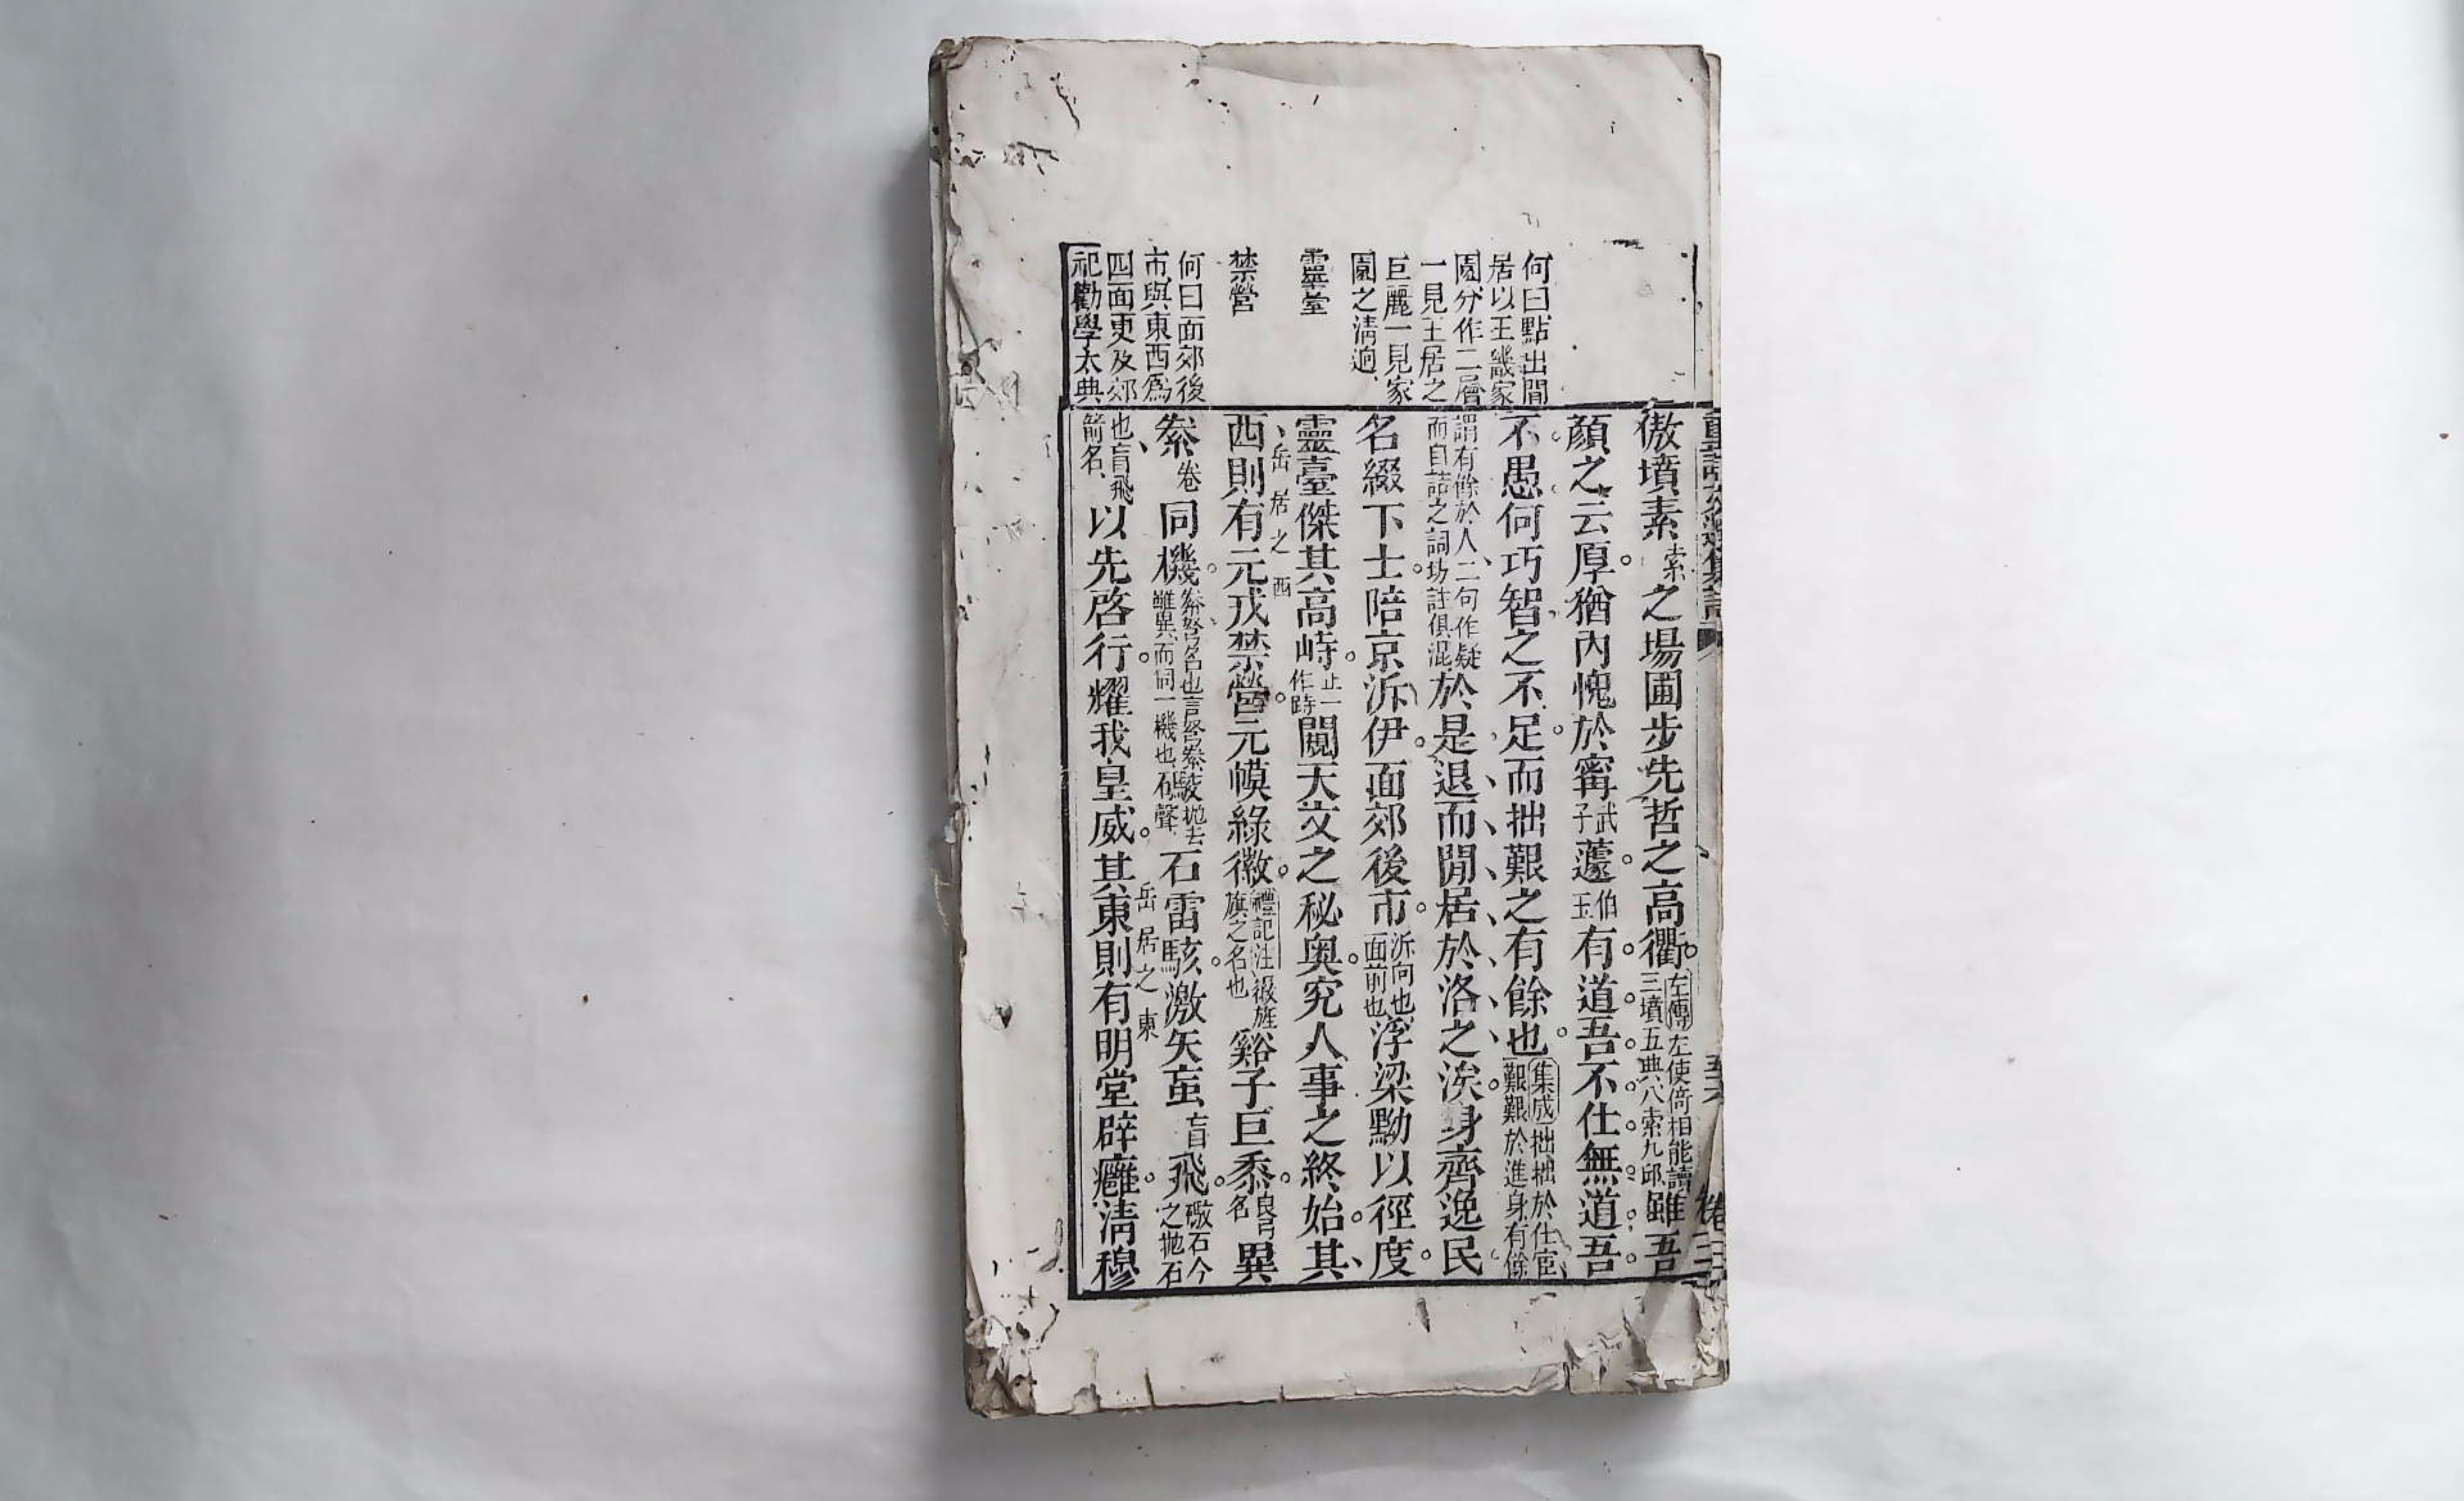 何曰點出閒
居以王畿家
園分作二層
一見王居之
巨麗一見家
園之清迥
靈臺
禁營
何曰面郊後
市與東西爲
四面更及郊
祀勸學大典
傲墳素索之場圃步先哲之高衢左傳左使倚相能讀三墳五典八索九邱雖吾
顔之云厚猶內愧於甯武子蘧伯玉有道吾不仕無道吾
不愚何巧智之不足而拙艱之有餘也集成拙拙於仕宦艱艱於進身有餘
謂有餘於人二句作疑而自詰之詞坊註俱混於是退而閒居於洛之涘身齊逸民
名綴下士陪京泝伊面郊後市泝向也面前也浮梁黝以徑度
靈臺傑其高峙止一作跱闚天文之秘奧究人事之終始其
岳居之西
西則有元戎禁營元幙綠徽禮記注徽旌旗之名也谿子巨黍良弓名異
絭卷同機絭弩名也言弩絭雖異而同一機也石雷駭激矢䖟盲飛礮石今之拋石
岳居之東
也䖟飛箭名以先啓行耀我皇威其東則有明堂辟廱淸穆
卷三